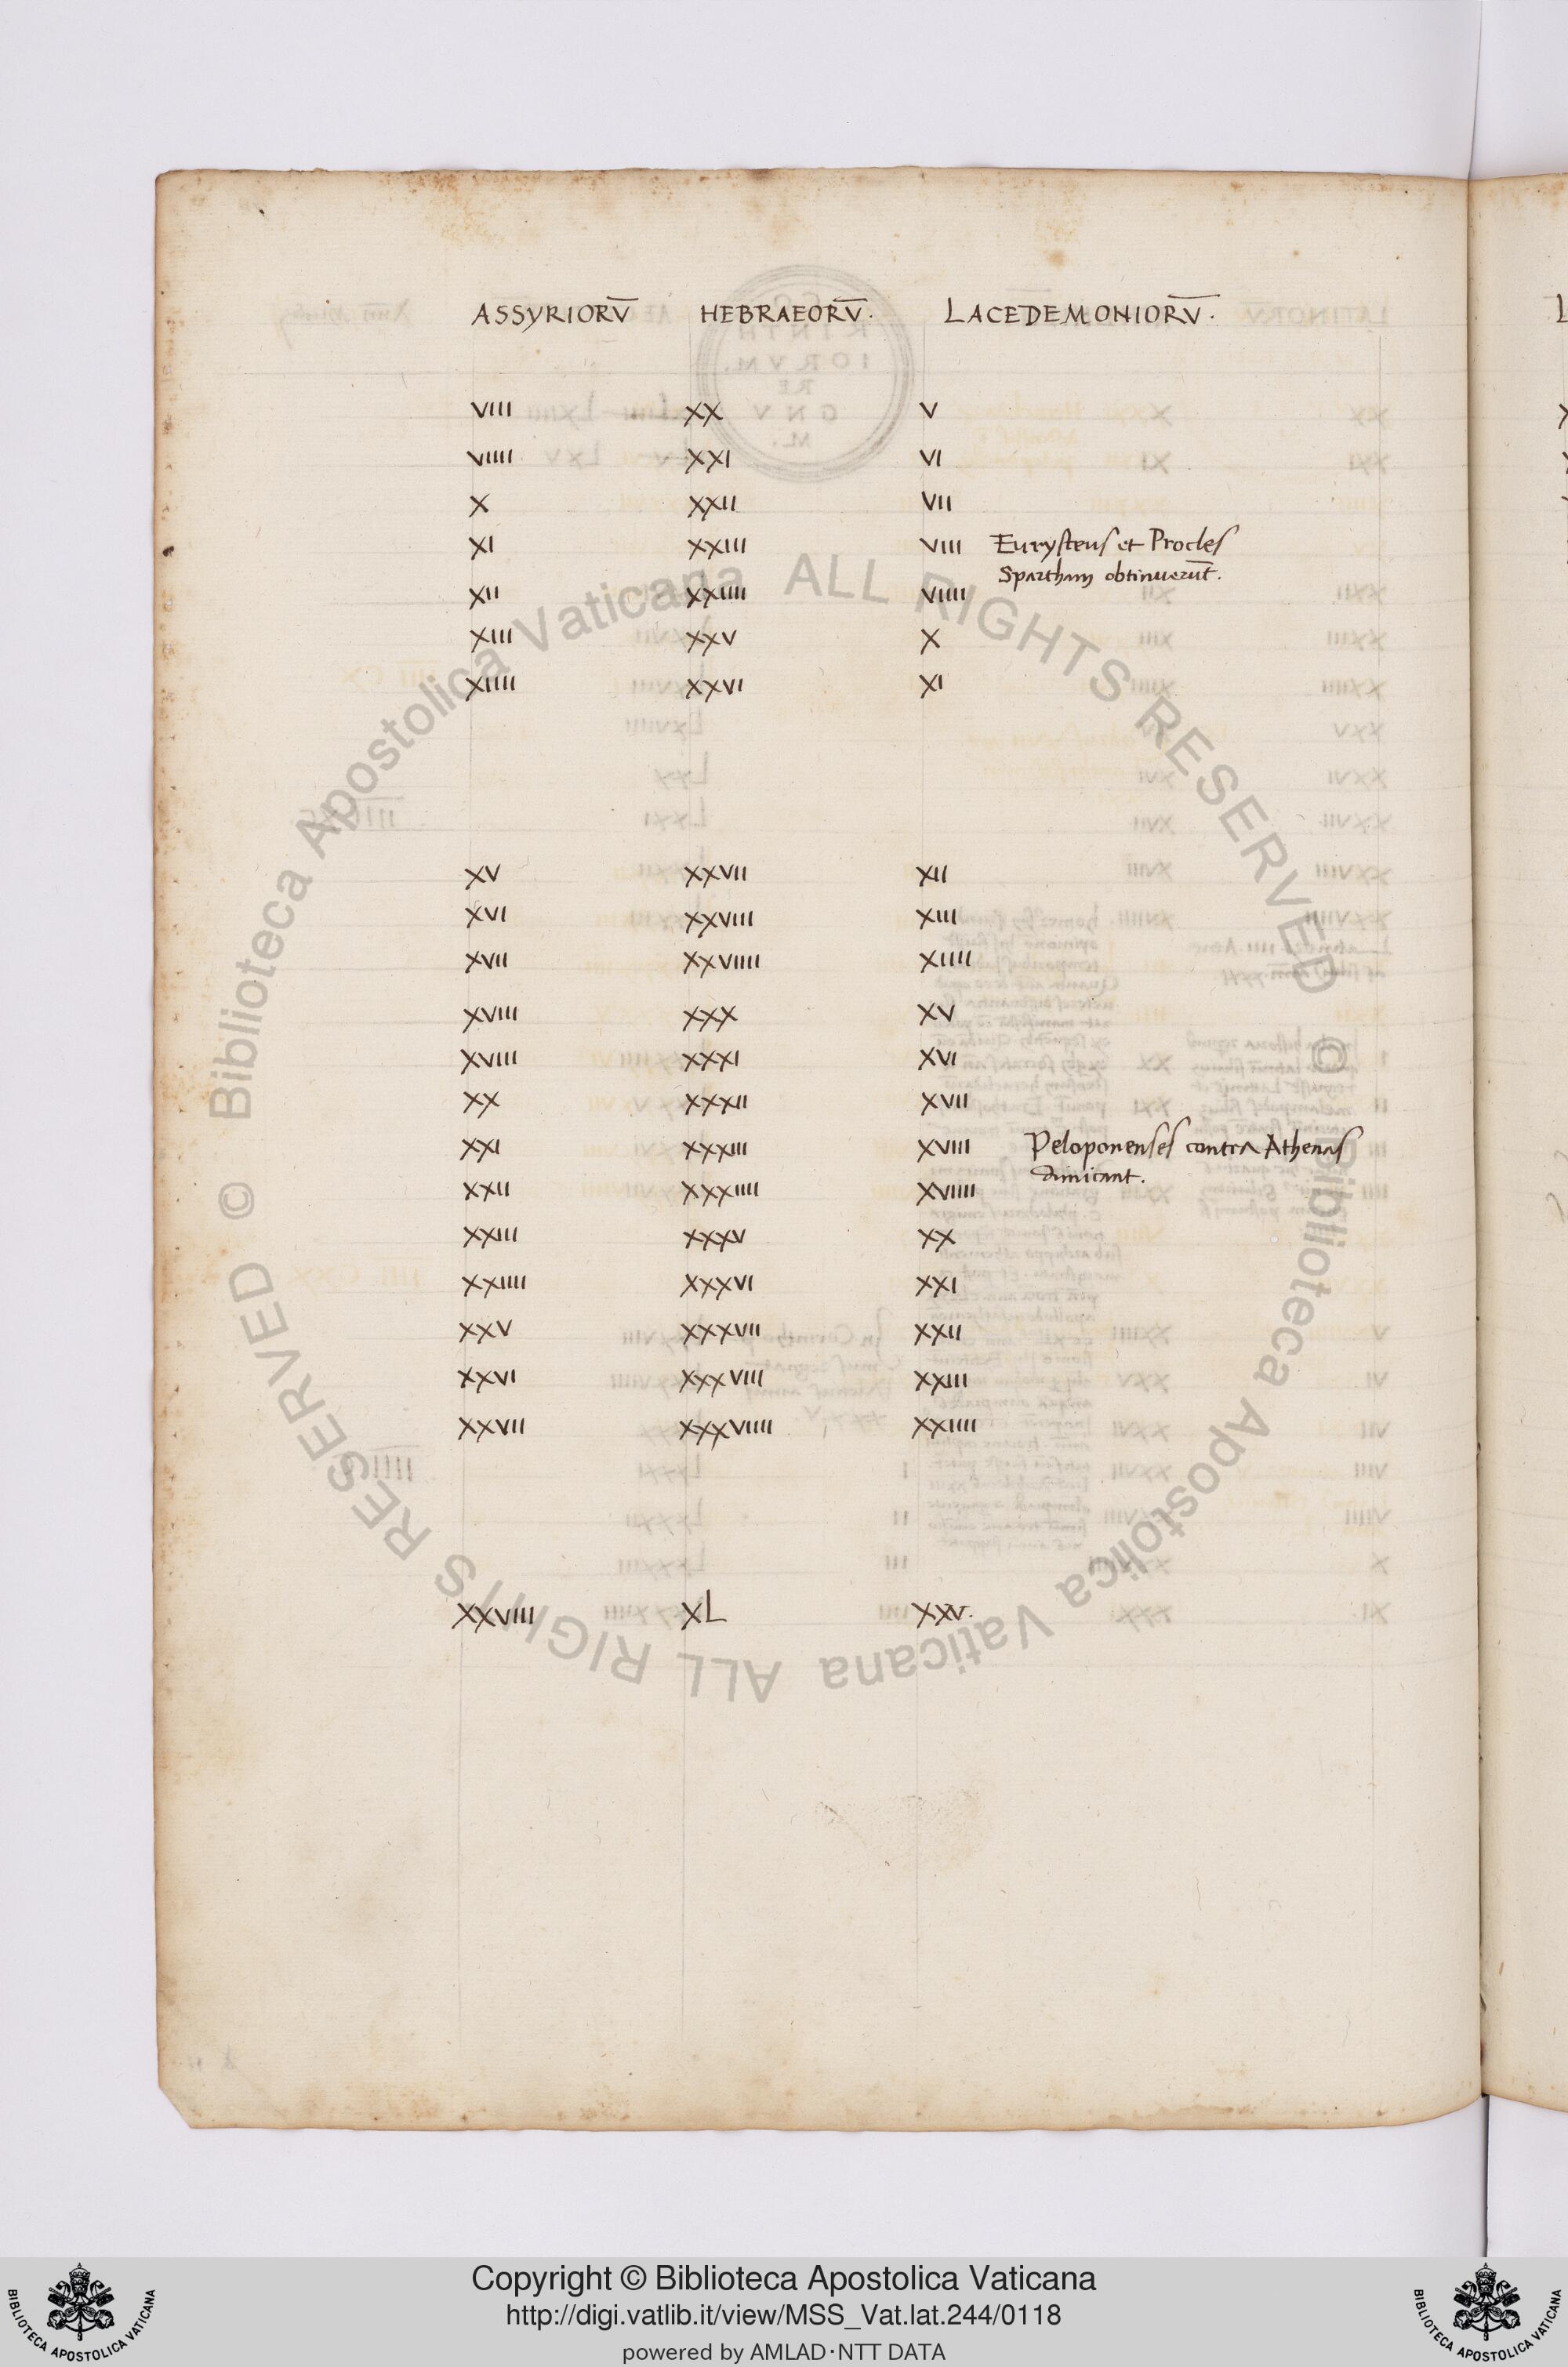 ASSYRIORV̄ HEBRAEORV̄. LACEDEMONIORV̄.
VIII XX V
VIIII XXI VI
X XXII VII
XI XXIII VIII Eurysteus et Procles
Spartham obtinuerūt.
XII XXIIII VIIII
XIII XXV X
XIIII XXVI XI
XV XXVII XII
XVI XXVIII XIII
XVII XXVIIII XIIII
XVIII XXX XV
XVIIII XXXI XVI
XX XXXII XVII
XXI XXXIII XVIII Peloponenses contra Athenas
dimicant.
XXII XXXIIII XVIIII
XXIII XXXV XX
XXIIII XXXVI XXI
XXV XXXVII XXII
XXVI XXXVIII XXIII
XXVII XXXVIIII XXIIII
XXVIII XL XXV.
© Biblioteca Apostolica Vaticana ALL RIGHTS RESERVED © Biblioteca Apostolica Vaticana ALL RIGHTS RESERVED
Copyright © Biblioteca Apostolica Vaticana
http://digi.vatlib.it/view/MSS_Vat.lat.244/0118
powered by AMLAD·NTT DATA
BIBLIOTECA APOSTOLICA VATICANA
BIBLIOTECA APOSTOLICA VATICANA